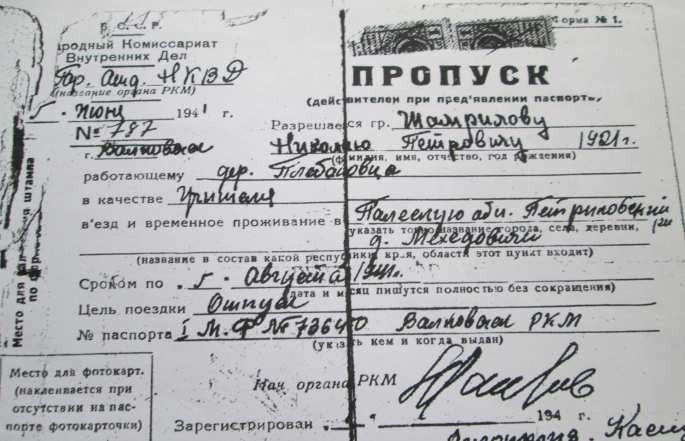 Р. С. С. Р.
Народный Комиссариат
Внутренних Дел
Форма № 1.
Гр. Отд. НКВД
ПРОПУСК
(название органа РКМ)
(действителен при пред'явлении паспорта)
5. Июня 1941 г.
№ 787
Разрешается гр. Шамрилову
г. Валковыск
Николаю Петровичу 1921 г.
(фамилия, имя, отчество, год рождения)
работающему дер. Плебановца
в качестве Учителя
в'езд и временное проживание в Палескую обл. Петриковский
(указать точно название города, села, деревни,
д. Мехедовичи
(название в состав какой республики, края, области этот пункт входит)
Сроком по 5. Августа 1941 г.
(дата и месяц пишутся полностью без сокращения)
Цель поездки Отпуск
№ паспорта I М. Ф № 73640 Валковыск РКМ
(указать кем и когда выдан)
Место для фотокарт.
(наклеивается при
отсутствии на пас-
порте фотокарточки)
Нач органа РКМ
Зарегистрирован 194 г.
Место для